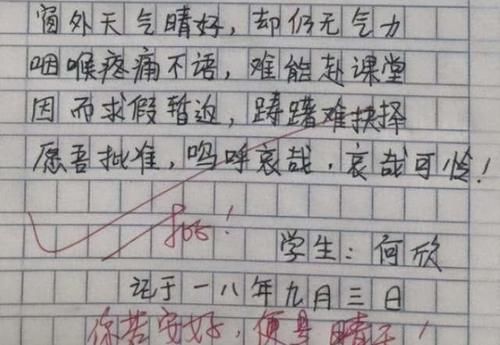 窗外天气晴好，却仍无气力
咽喉疼痛不语，难能赴课堂
因而求假暂返，踌躇难抉择
愿吾批准，呜呼哀哉，哀哉可怜！
批！
学生：何欣
记于一八年九月三日
你若安好，便是晴天！